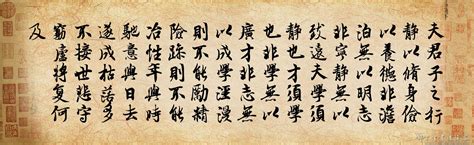 夫君子之行
靜以脩身儉
以養德非澹
泊無以明志
非寧靜無以
致遠夫學須
靜也才須學
也非學無以
廣才非志無
以成學淫漫
則不能勵精
險躁則不能
冶性年與時
馳意與日去
遂成枯落多
不接世悲守
窮廬將復何
及